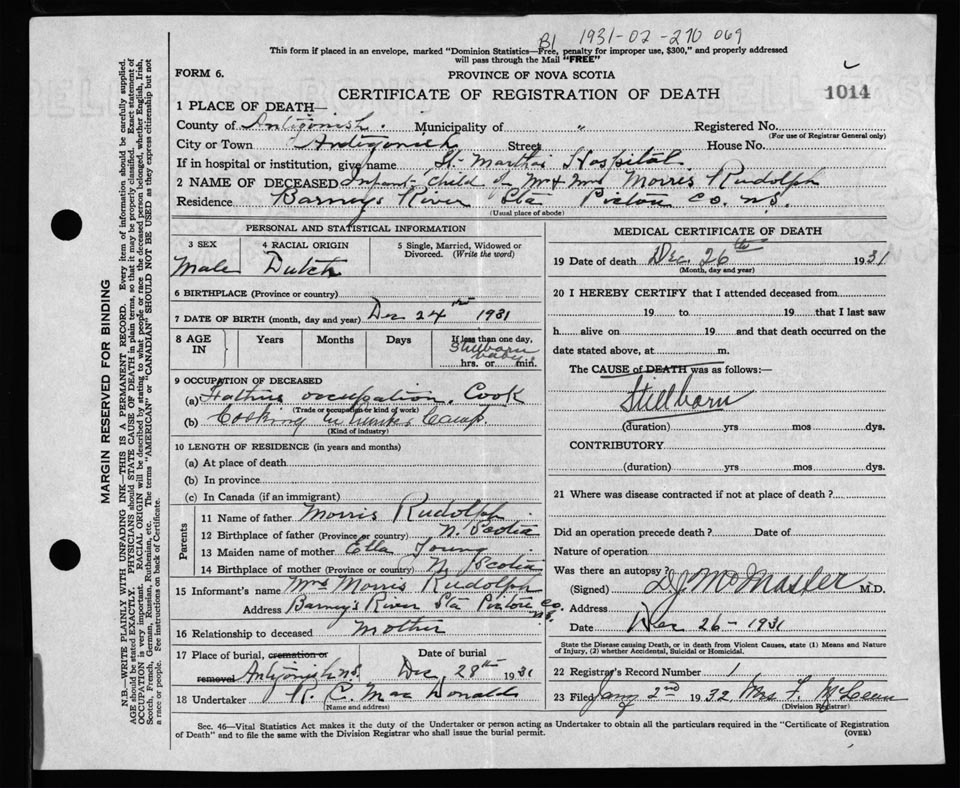 B1 1931-02-270 069
This form if placed in an envelope, marked "Dominion Statistics—Free, penalty for improper use, $300," and properly addressed
will pass through the Mail "FREE"
FORM 6.
PROVINCE OF NOVA SCOTIA
CERTIFICATE OF REGISTRATION OF DEATH
1014
1 PLACE OF DEATH—
County of Antigonish. Municipality of " Registered No.
(For use of Registrar General only)
City or Town Antigonish Street House No.
If in hospital or institution, give name St. Martha's Hospital.
2 NAME OF DECEASED Infant Child of Mr & Mrs Morris Rudolph
Residence Barney's River Sta Pictou Co. N.S.
(Usual place of abode)
PERSONAL AND STATISTICAL INFORMATION
3 SEX 4 RACIAL ORIGIN 5 Single, Married, Widowed or Divorced. (Write the word)
Male Dutch
6 BIRTHPLACE (Province or country)
7 DATE OF BIRTH (month, day and year) Dec 24th 1931
8 AGE IN Years Months Days If less than one day,
Stillborn baby
hrs. or min.
9 OCCUPATION OF DECEASED
(a) Fathers occupation. Cook
(Trade or occupation or kind of work)
(b) Cooking in Camp.
(Kind of industry)
10 LENGTH OF RESIDENCE (in years and months)
(a) At place of death
(b) In province
(c) In Canada (if an immigrant)
Parents
11 Name of father Morris Rudolph
12 Birthplace of father (Province or country) N. Scotia
13 Maiden name of mother Ella Young
14 Birthplace of mother (Province or country) N. Scotia
15 Informant's name Mrs Morris Rudolph
Address Barney's River Sta Pictou Co. N.S.
16 Relationship to deceased Mother
17 Place of burial, cremation or removal Antigonish N.S. Date of burial Dec. 28th 1931
18 Undertaker R. C. MacDonald
(Name and address)
MEDICAL CERTIFICATE OF DEATH
19 Date of death Dec. 26th 1931
(Month, day and year)
20 I HEREBY CERTIFY that I attended deceased from
19 to 19 that I last saw
h alive on 19 and that death occurred on the
date stated above, at m.
The CAUSE of DEATH was as follows:—
Stillborn
(duration) yrs mos dys.
CONTRIBUTORY
(duration) yrs mos dys.
21 Where was disease contracted if not at place of death?
Did an operation precede death? Date of
Nature of operation
Was there an autopsy?
(Signed) D J McMaster M.D.
Address
Date Dec 26 - 1931
State the Disease causing Death, or in Death from Violent Causes, state (1) Means and Nature
of Injury, (2) whether Accidental, Suicidal or Homicidal.
22 Registrar's Record Number 1
23 Filed Jany 2nd 1932 Mrs F. McLean
(Division Registrar)
Sec. 46—Vital Statistics Act makes it the duty of the Undertaker or person acting as Undertaker to obtain all the particulars required in the "Certificate of Registration
of Death" and to file the same with the Division Registrar who shall issue the burial permit.
(OVER)
MARGIN RESERVED FOR BINDING
N.B.—WRITE PLAINLY WITH UNFADING INK—THIS IS A PERMANENT RECORD. Every item of information should be carefully supplied.
AGE should be stated EXACTLY. PHYSICIANS should STATE CAUSE OF DEATH in plain terms, so that it may be properly classified. Exact statement of
OCCUPATION is very important. RACIAL ORIGIN will be described by stating to what people or race the deceased person belonged, whether English, Irish,
Scotch, French, German, Russian, Ruthenian, etc. The terms "AMERICAN" or "CANADIAN" SHOULD NOT BE USED as they express citizenship but not
a race or people. See instructions on back of Certificate.